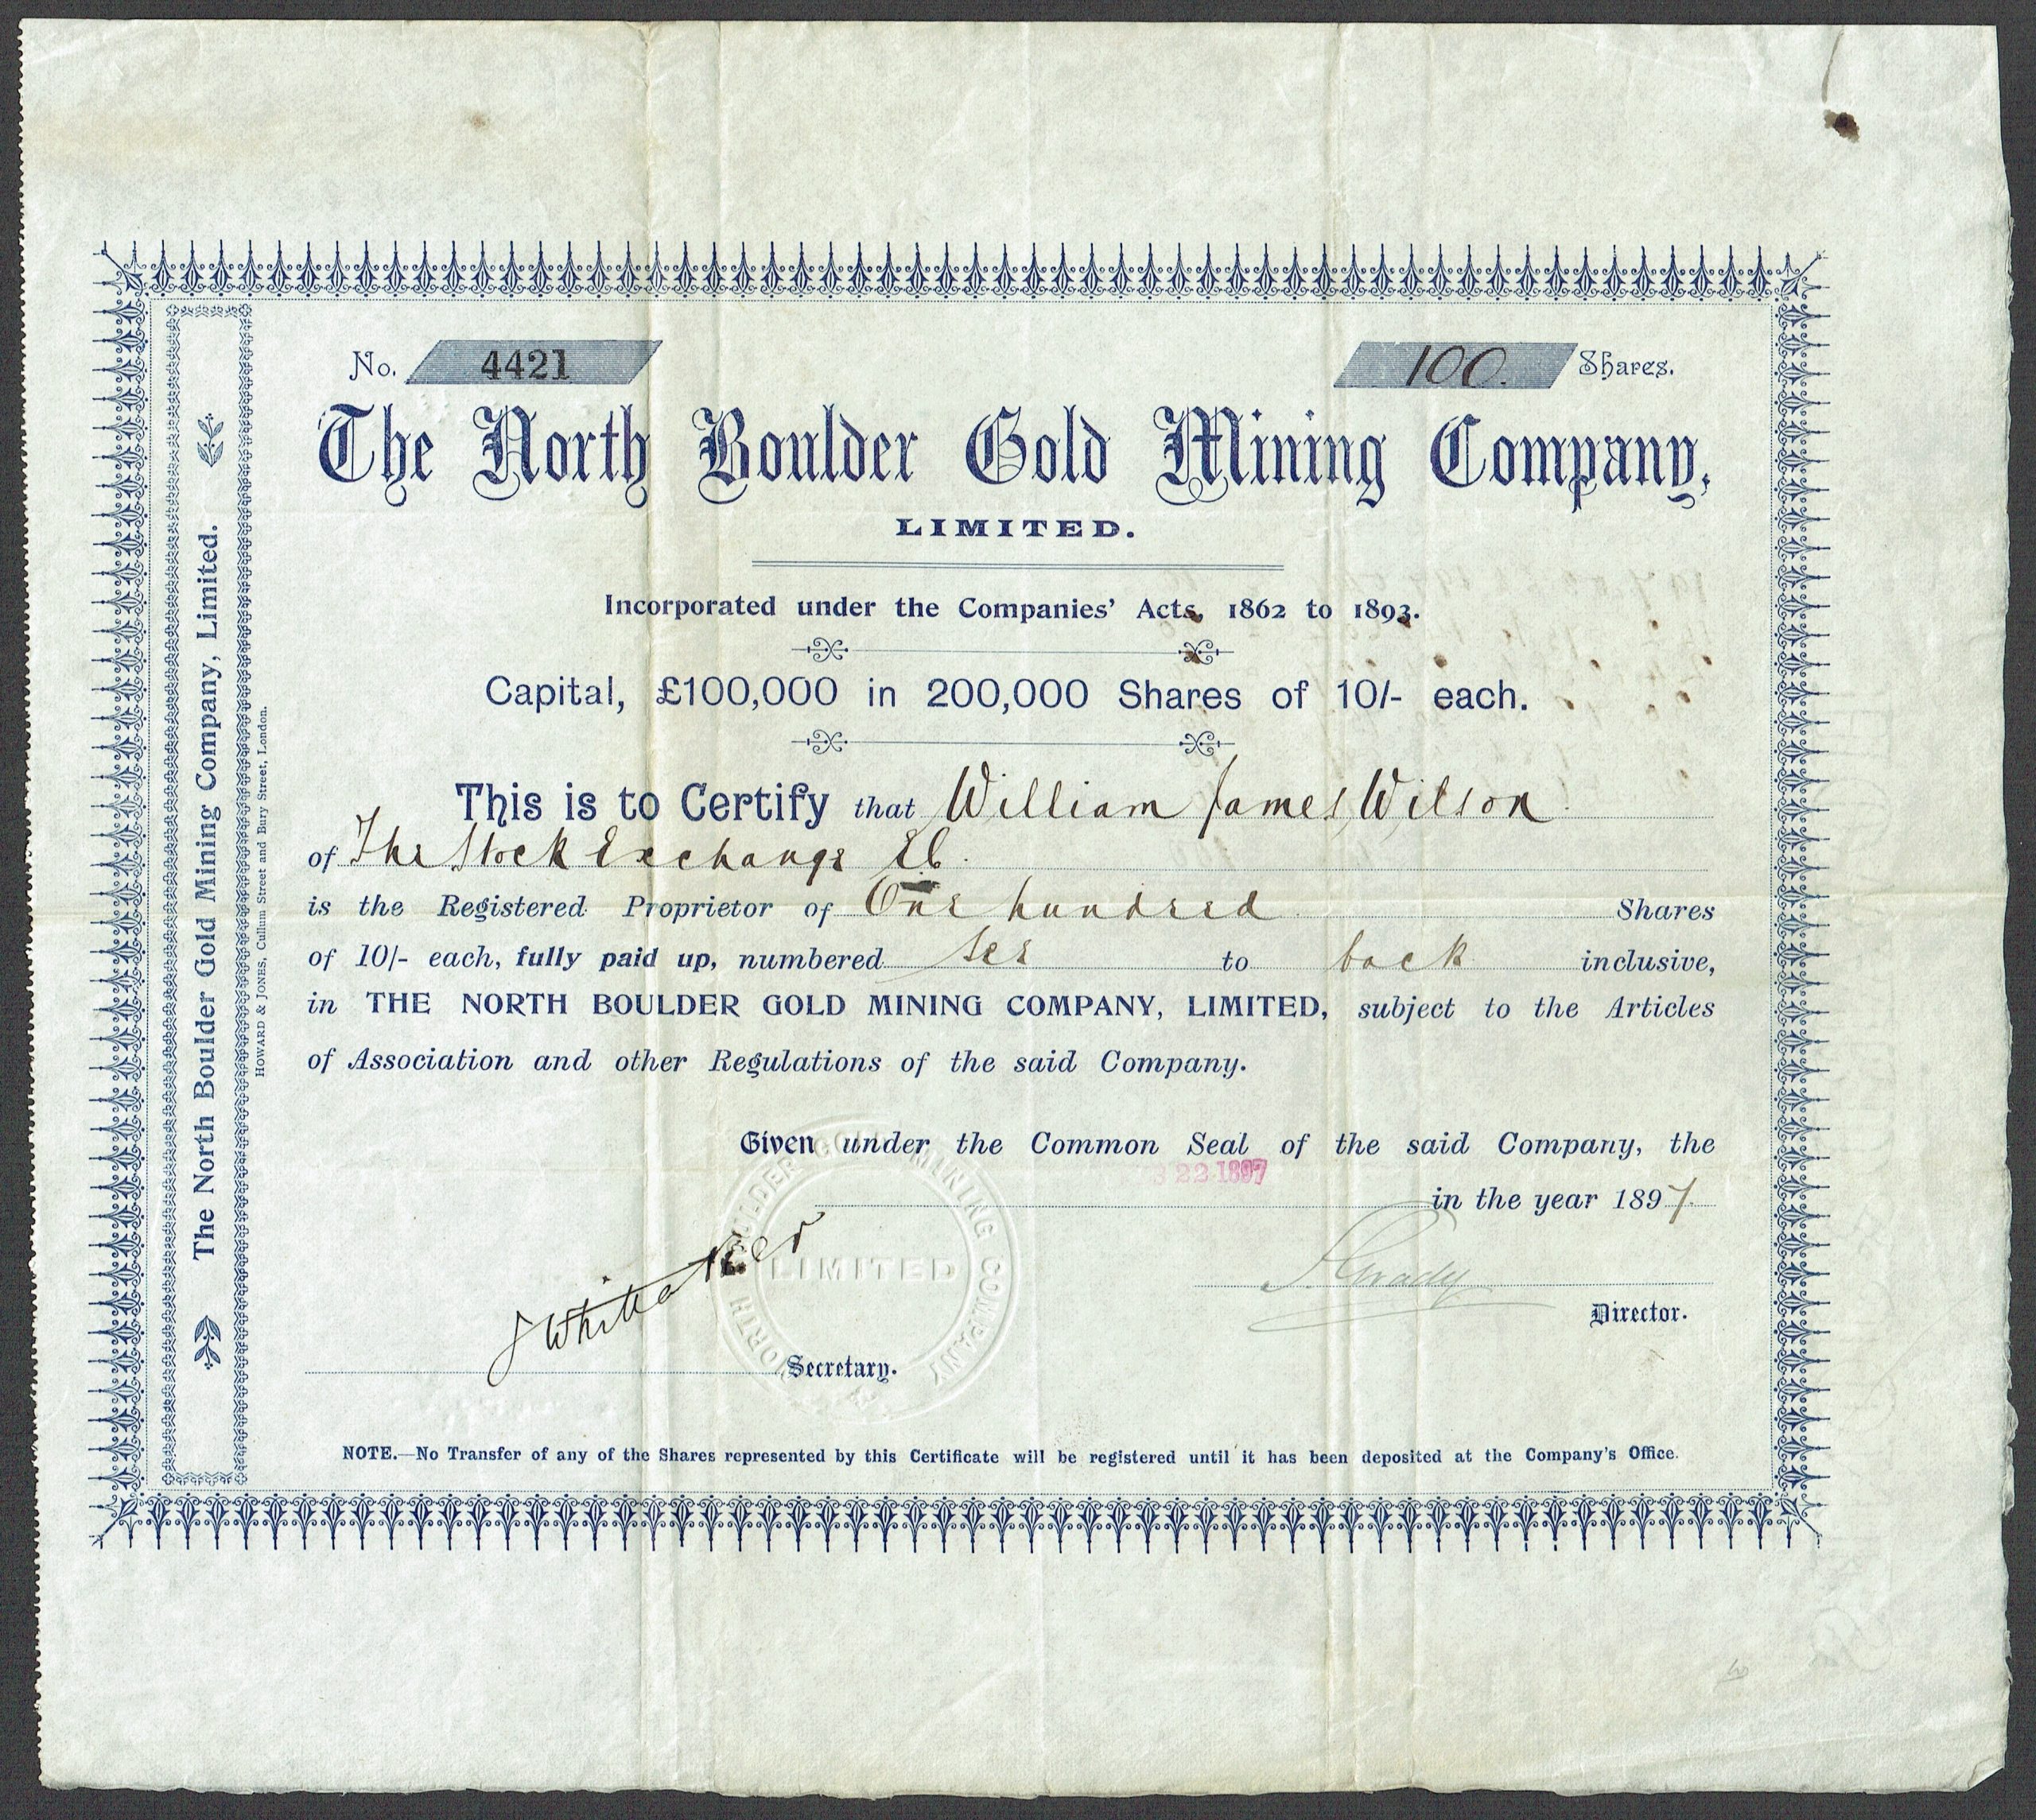 No. 4421
100. Shares.
The North Boulder Gold Mining Company,
LIMITED.
Incorporated under the Companies' Acts, 1862 to 1893.
Capital, £100,000 in 200,000 Shares of 10/- each.
This is to Certify that William James Wilson
of The Stock Exchange EC.
is the Registered Proprietor of One hundred Shares
of 10/- each, fully paid up, numbered see to back inclusive,
in THE NORTH BOULDER GOLD MINING COMPANY, LIMITED, subject to the Articles
of Association and other Regulations of the said Company.
Given under the Common Seal of the said Company, the
22 1897
in the year 1897.
J Whittaker
Grady
Director.
Secretary.
NORTH BOULDER GOLD MINING COMPANY
LIMITED
NOTE.—No Transfer of any of the Shares represented by this Certificate will be registered until it has been deposited at the Company's Office.
The North Boulder Gold Mining Company, Limited.
HOWARD & JONES, Cullum Street and Bury Street, London.